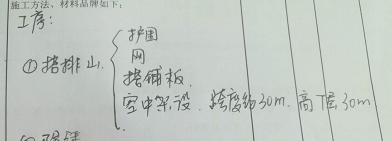 施工方法、材料品牌如下:
工序:
①搭排山.
护围
网
搭铺板.
空中架设.跨度约30m.高下35m